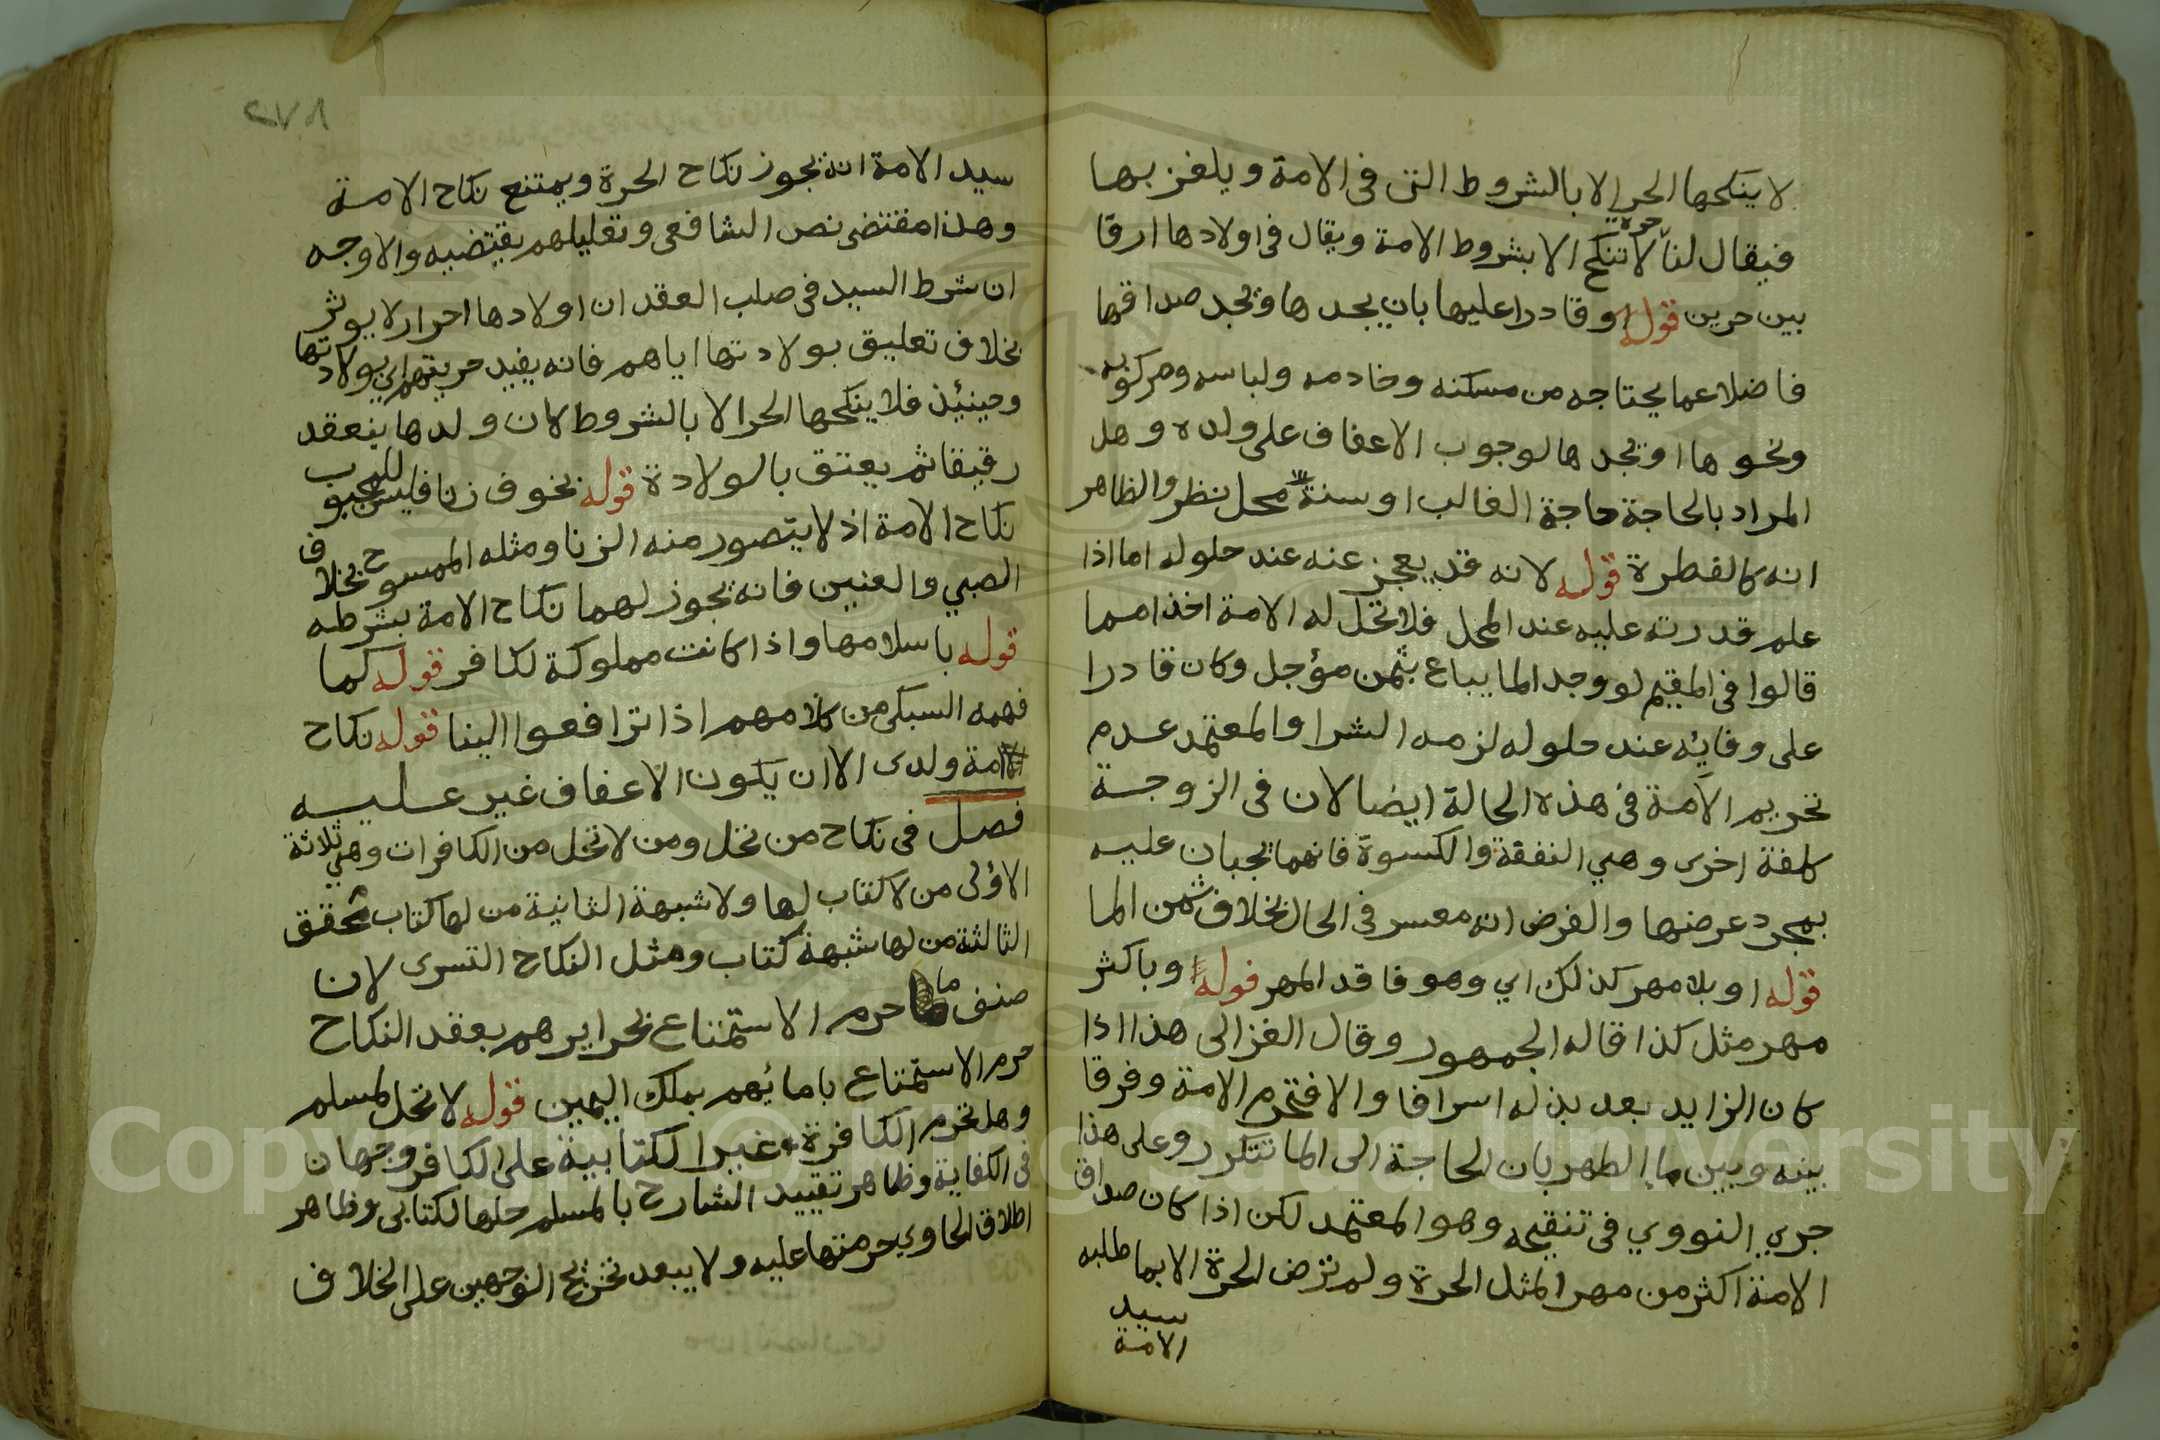 لا ينكحها الحر الا بالشروط التى فى الامة ويلغز بها
فيقال لنا حرة لا تنكح الا بشروط الامة ويقال فى اولادها ارقا
بين حرين قوله او قادرا عليها بان يجدها ويجد صداقها
فاضلا عما يحتاجه من مسكنه وخادمه ولباسه ومركوبه
ونحوها او يجدها لوجوب الاعفاف على ولده وهل
المراد بالحاجة حاجة الغالب او سنة محل نظر والظاهر
انه كالفطرة قوله لانه قد يعجز عنه عند حلوله اما اذا
علم قدرته عليه عند المحل فلا تحل له الامة اخذا مما
قالوا فى المقيم لو وجد الما يباع بثمن مؤجل وكان قادرا
على وفائه عند حلوله لزمه الشرا والمعتمد عدم
تحريم الامة فى هذه الحالة ايضا لان فى الزوجة
كلفة اخرى وهي النفقة والكسوة فانهما يجبان عليه
بمجرد عرضها والفرض انه معسر فى الحال بخلاف ثمن الما
قوله او بلا مهر كذلك اي وهو فاقد المهر قوله او باكثر
مهر مثل كذا قاله الجمهور وقال الغزالى هذا اذا
كان الزايد بعد بذله اسرافا والا فتحرم الامة وفرقا
بينه وبين ما الطهر بان الحاجة الى الما تتكرر وعلى هذا
جري النووي فى تنقيحه وهو المعتمد لكن اذا كان صداق
الامة اكثر من مهر المثل الحرة ولم ترض الحرة الا بما طلبه
سيد
الامة
٢٧٨
سيد الامة انه يجوز نكاح الحرة ويمتنع نكاح الامة
وهذا مقتضى نص الشافعى وتعليلهم يقتضيه والاوجه
ان شرط السيد فى صلب العقد ان اولادها احرار لا يوثر
بخلاف تعليق بولادتها اياهم فانه يفيد حريتهم اي بولادتها
وحينئذ فلا ينكحها الحر الا بالشروط لان ولدها ينعقد
رقيقا ثم يعتق بالولادة قوله بخوف زنا فليس للمجبوب
نكاح الامة اذ لا يتصور منه الزنا ومثله الممسوح بخلاف
الصبي والعنين فانه يجوز لهما نكاح الامة بشرطه
قوله باسلامها واذا كانت مملوكة لكافر قوله كما
فهمه السبكى من كلامهم اذا ترافعوا الينا قوله نكاح
امة ولدى الا ان يكون الاعفاف غير عليه
فصل فى نكاح من تحل ومن لا تحل من الكافرات وهي ثلاثة
الاولى من لا كتاب لها ولا شبهة الثانية من لها كتاب محقق
الثالثة من لها شبهة كتاب ومثل النكاح التسرى لان
صنف ما حرم الاستمتاع بحرايرهم بعقد النكاح
حرم الاستمتاع بامائهم بملك اليمين قوله لا تحل لمسلم
وهل تحرم الكافرة غير الكتابية على الكافر وجهان
فى الكفاية وظاهر تقييد الشارح بالمسلم حلها لكتابى وظاهر
اطلاق الحاوي حرمتها عليه ولا يبعد تخريج الوجهين على الخلاف
Copyright © King Saud University